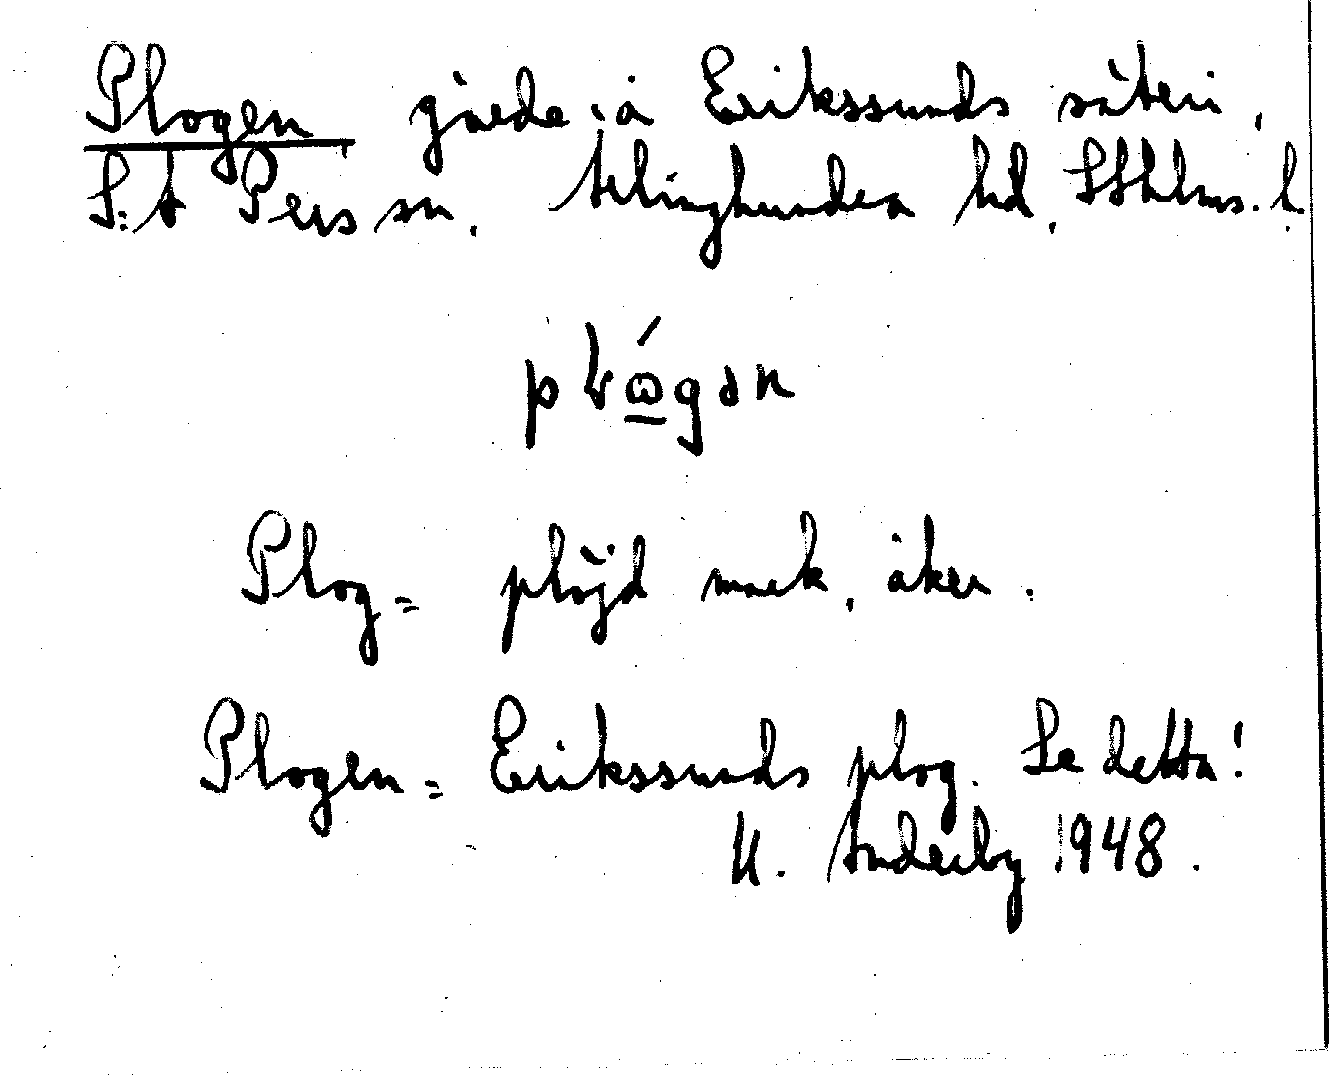 Plogen, gärde å Erikssunds säteri,
S:t Pers sn. Ärlinghundra hd, Sthlms. l.
pló̱gən
Plog = plöjd mark, åker.
Plogen = Erikssunds plog. Se detta!
1948.